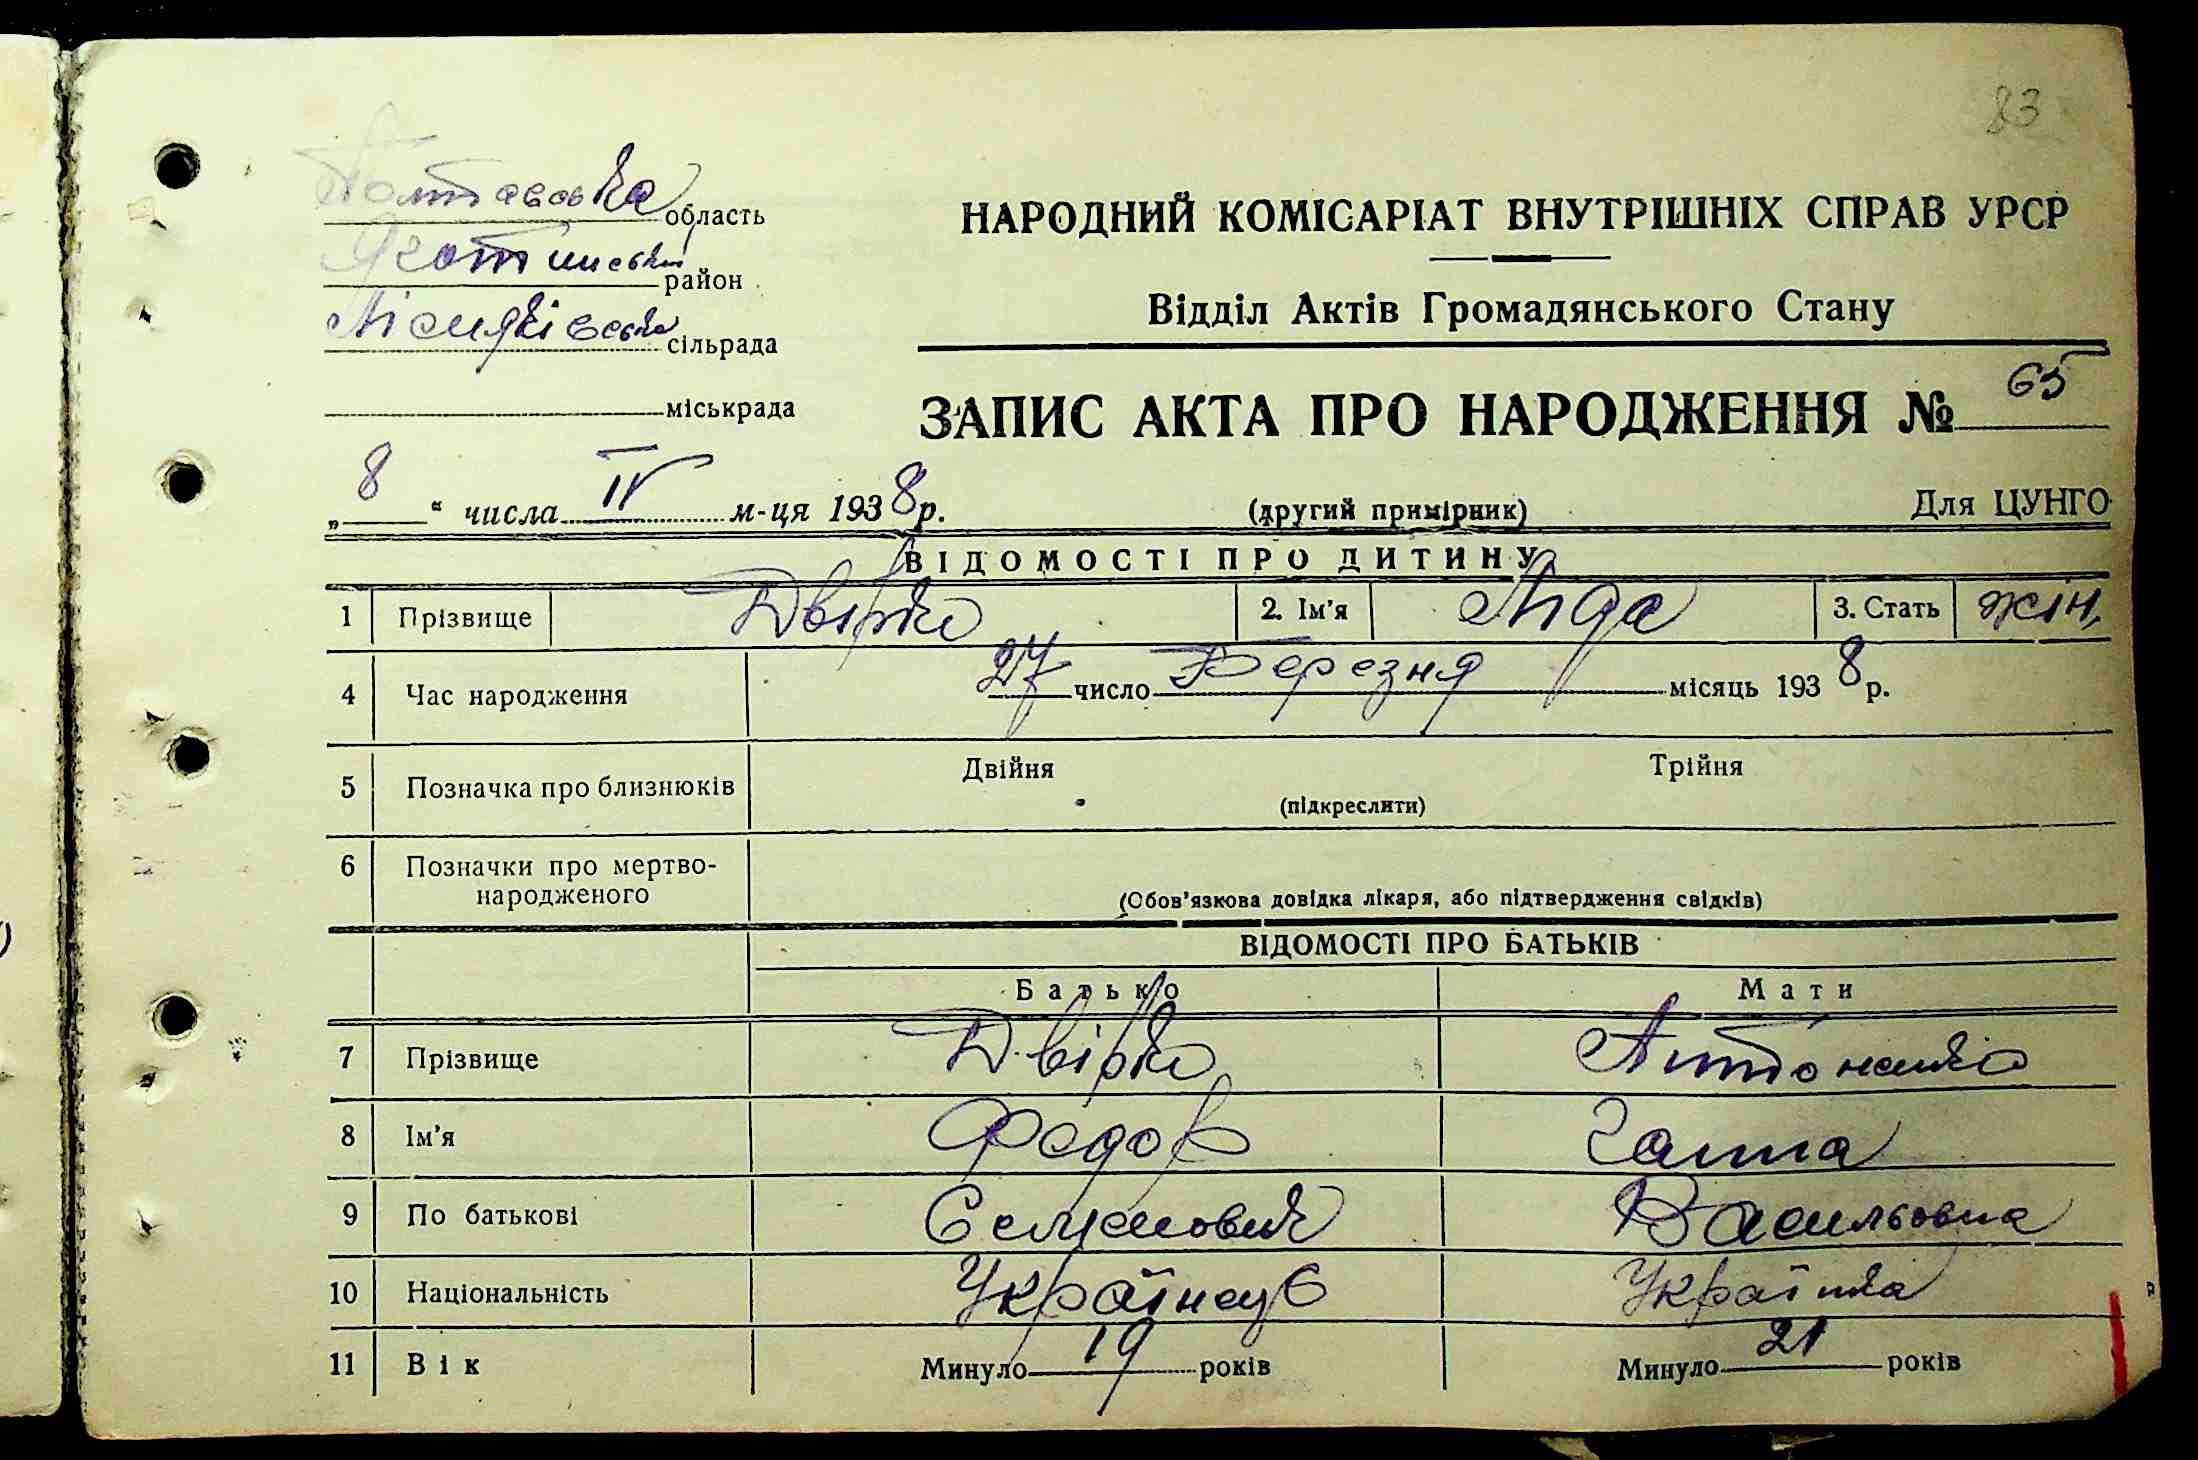 83
Полтавська область
Яготинський район
Лісняківська сільрада
міськрада
НАРОДНИЙ КОМІСАРІАТ ВНУТРІШНІХ СПРАВ УРСР
Відділ Актів Громадянського Стану
ЗАПИС АКТА ПРО НАРОДЖЕННЯ № 65
„8“ числа IV м-ця 1938 р. (другий примірник) Для ЦУНГО
ВІДОМОСТІ ПРО ДИТИНУ
1 Прізвище Двірко 2. Ім'я Ліда 3. Стать жін.
4 Час народження 27 число Березня місяць 1938 р.
5 Позначка про близнюків Двійня Трійня
(підкреслити)
6 Позначки про мертво-
народженого
(Обов'язкова довідка лікаря, або підтвердження свідків)
ВІДОМОСТІ ПРО БАТЬКІВ
Батько Мати
7 Прізвище Двірко Антоненко
8 Ім'я Федор Ганна
9 По батькові Семенович Васильовна
10 Національність Українець Українка
11 Вік Минуло 19 років Минуло 21 років